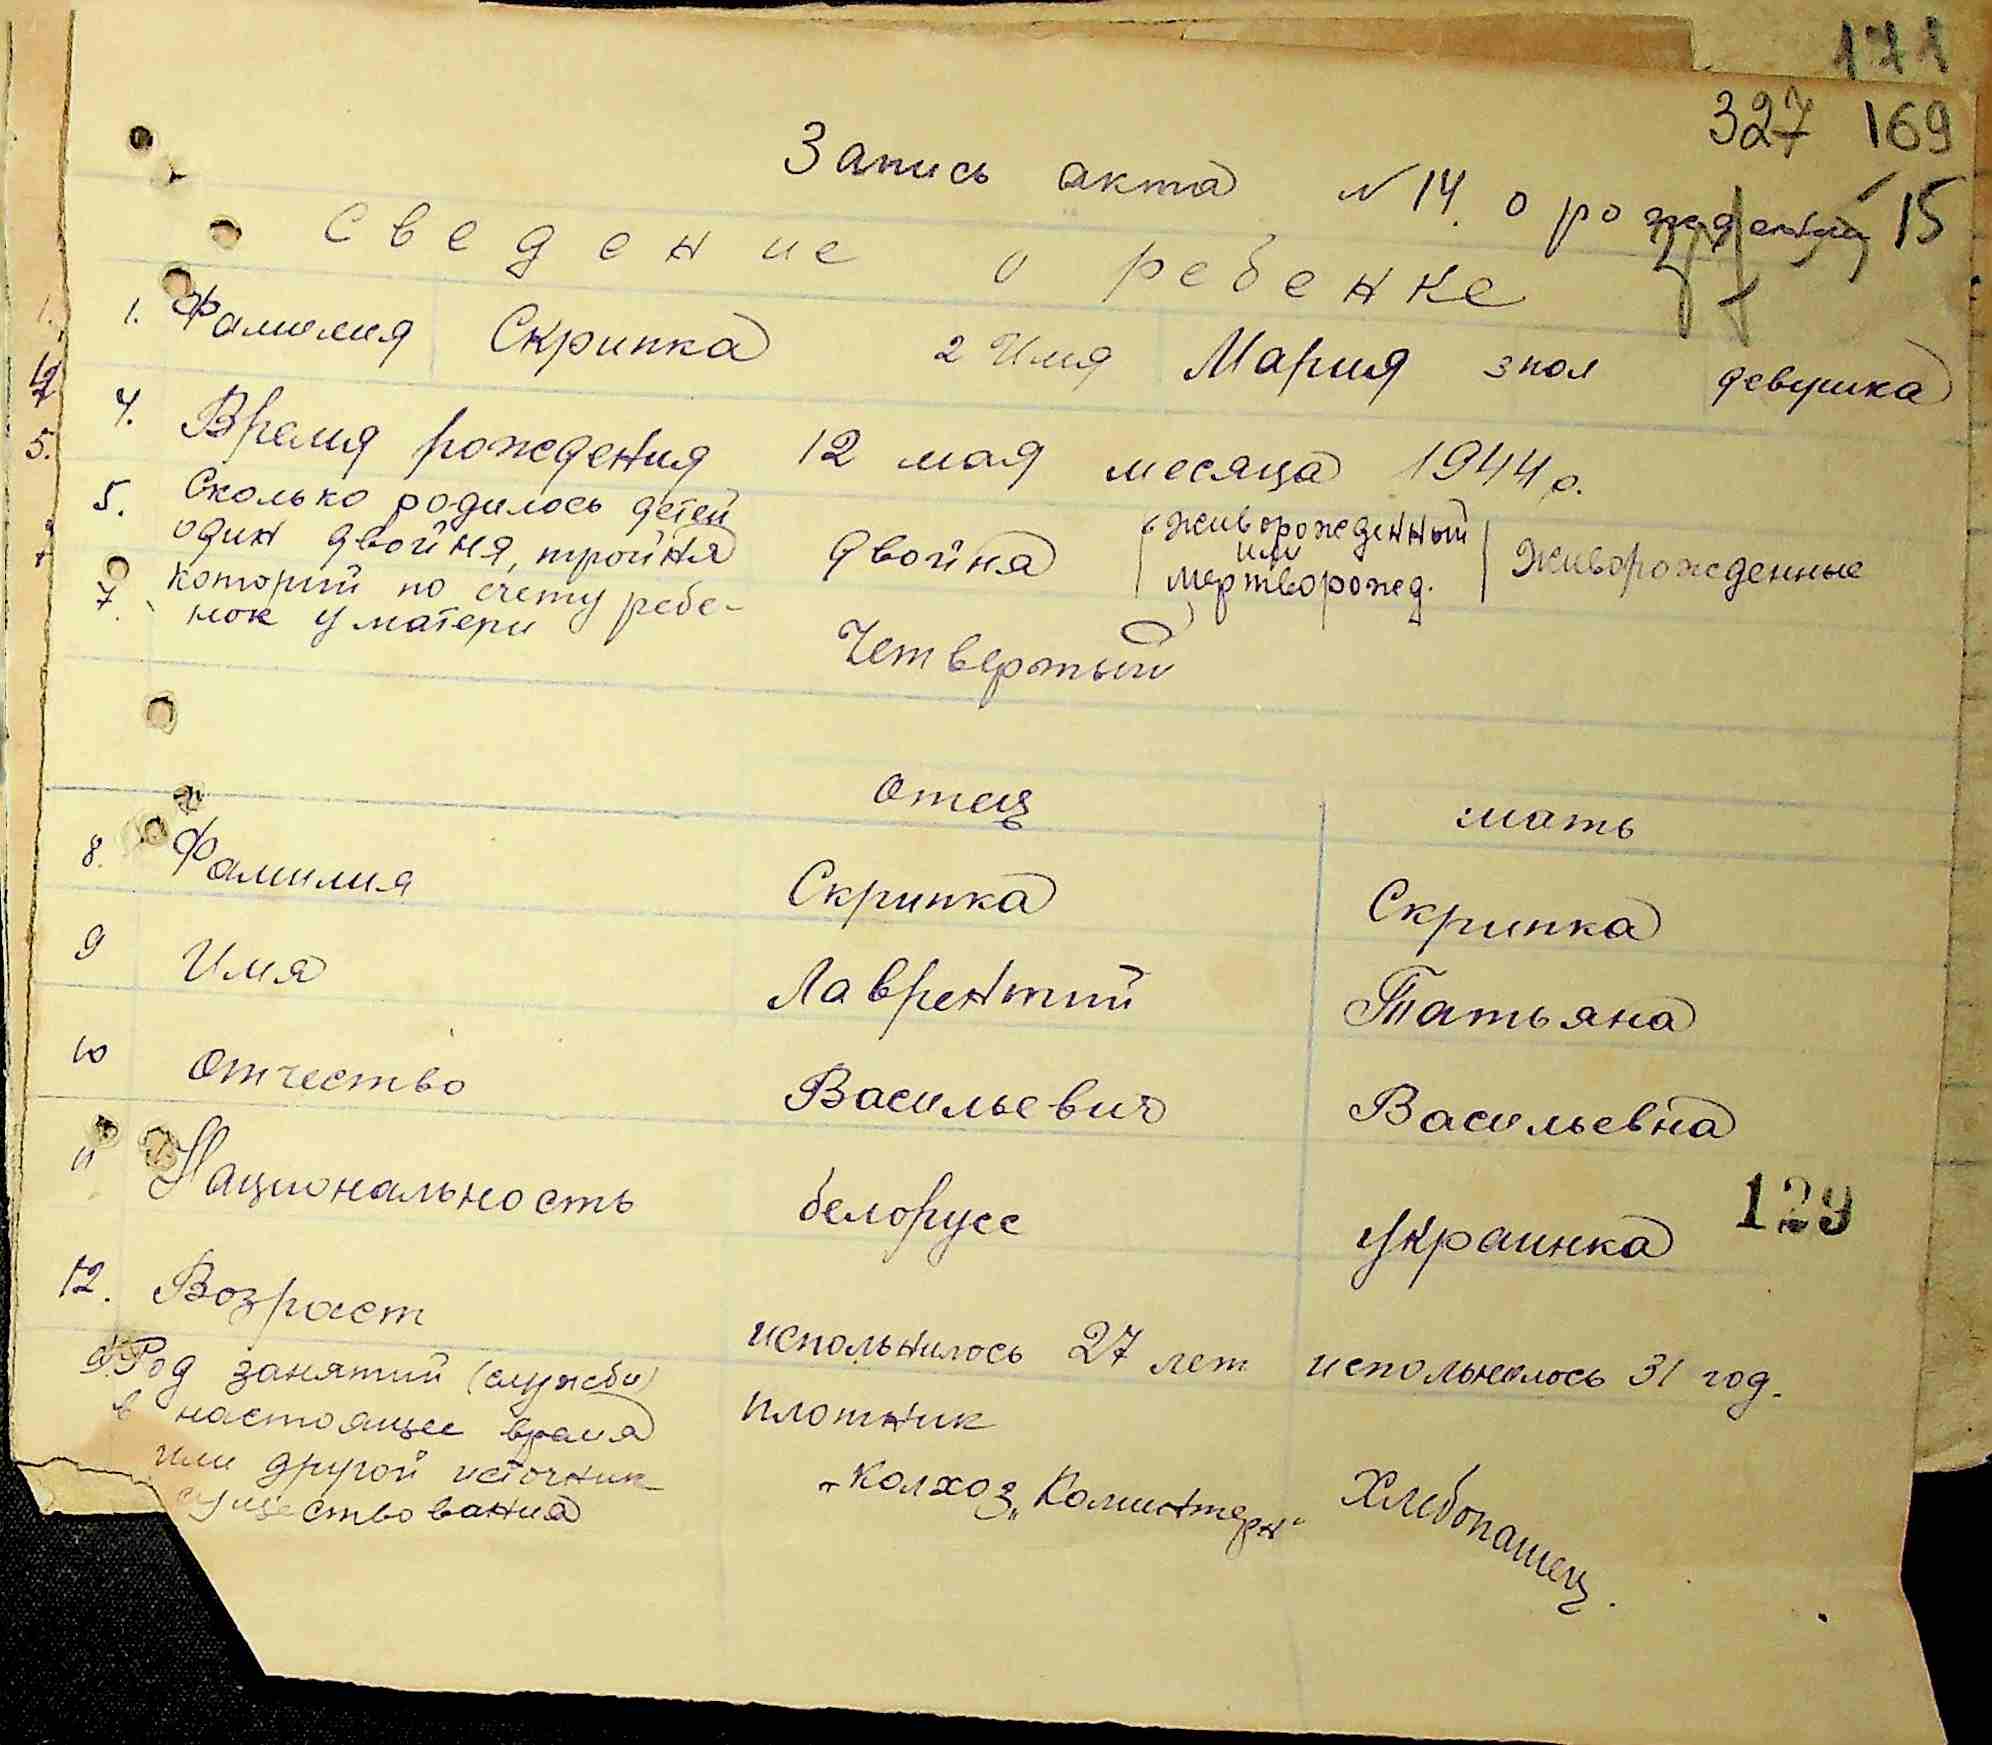 171
327 169
Запись акта N 14 о рождении 15
Сведение о ребенке
1. Фамилия Скрипка 2 Имя Мария 3 пол девушка
4. Время рождения 12 мая месяца 1944 г.
5. Сколько родилось детей
один двойня, тройня двойня
6 живорожденный
или
мертворожд. Живорожденные
7. который по счету ребе-
нок у матери Четвертый
отец мать
8. Фамилия Скрипка Скрипка
9 Имя Лаврентий Татьяна
10 отчество Васильевич Васильевна
11 Национальность белорусс Украинка
129
12. Возраст испольнилось 27 лет испольнелось 31 год.
Род занятий (служеби)
в настоящее время
или другой источник
существования
плотник
колхоз „Коминтерн“ Хлебопашец.